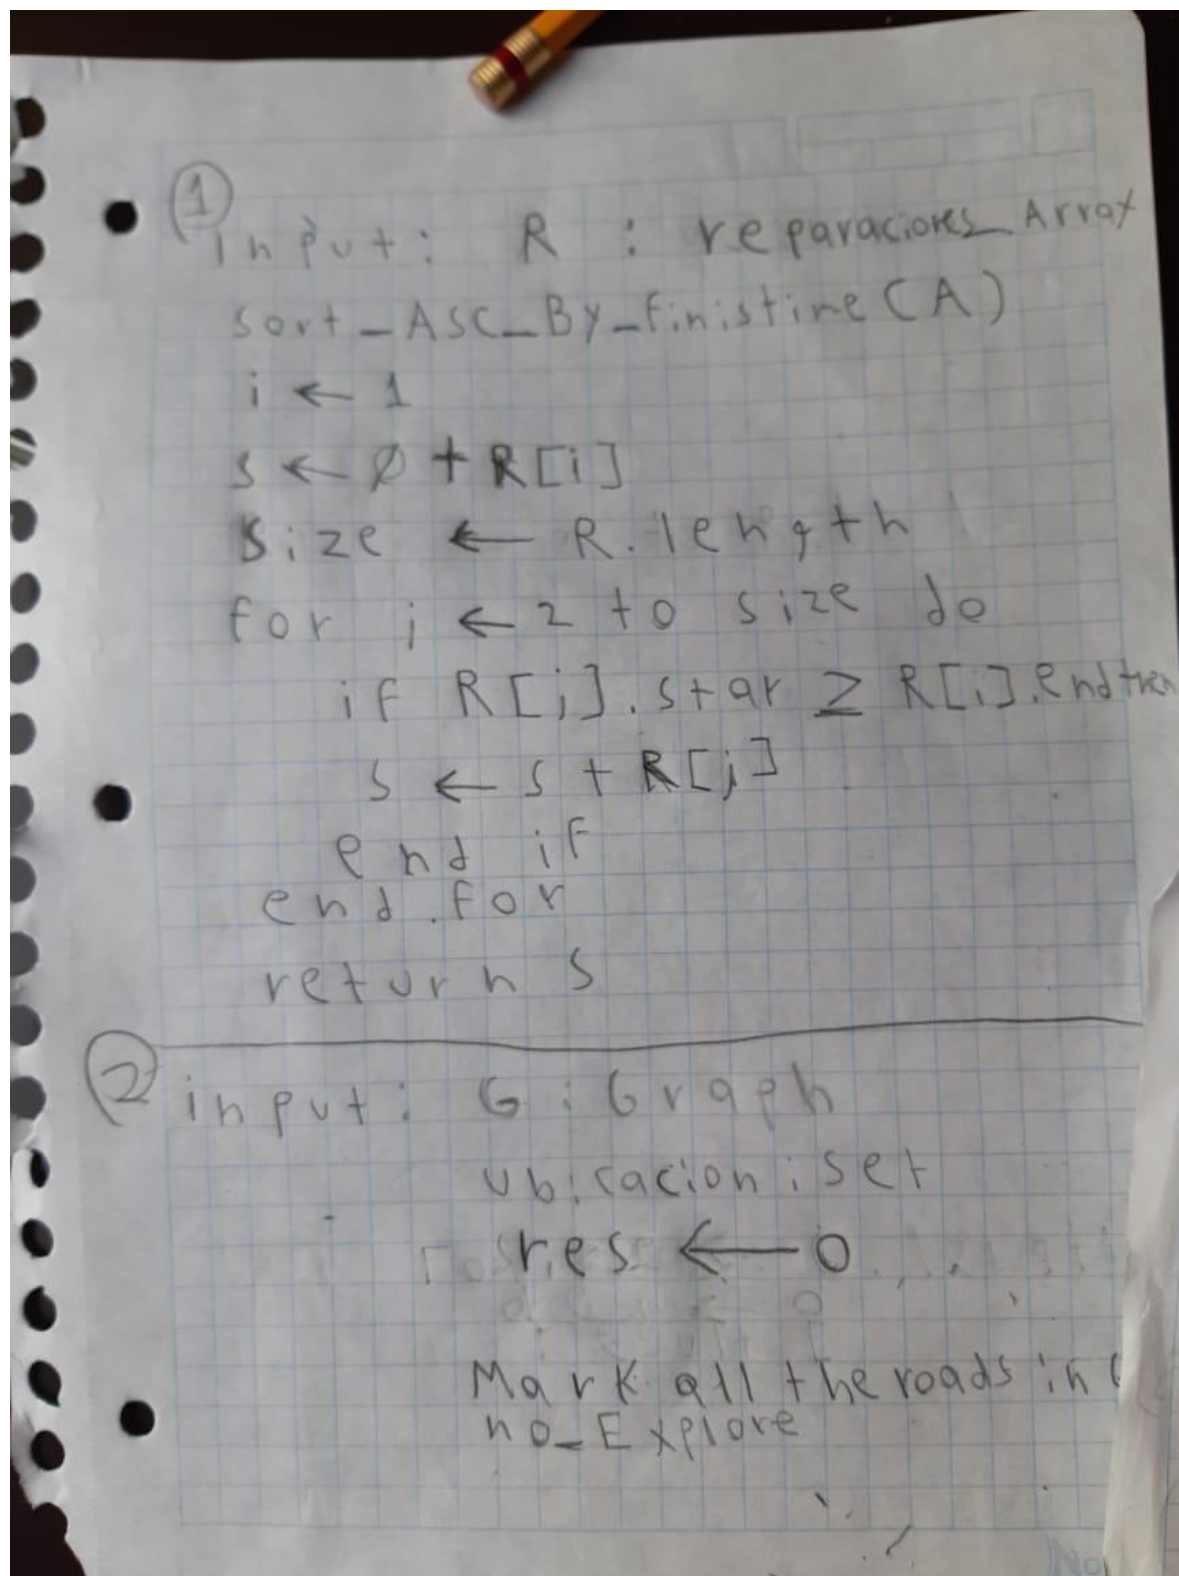 1
input: R : reparaciones_Array
sort_ASC_By_finistime(A)
i ← 1
s ← ∅ + R[i]
size ← R.length
for j ← 2 to size do
if R[j].star ≥ R[i].end then
s ← s + R[j]
end if
end.for
return s
2
input: G : Graph
ubicacion : set
res ← 0
Mark all the roads in
no_Explore